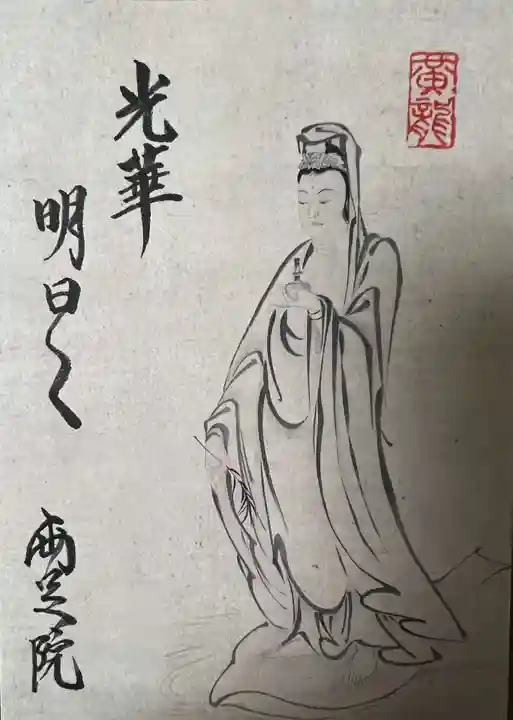 黄龍
光華
明日く
両足院